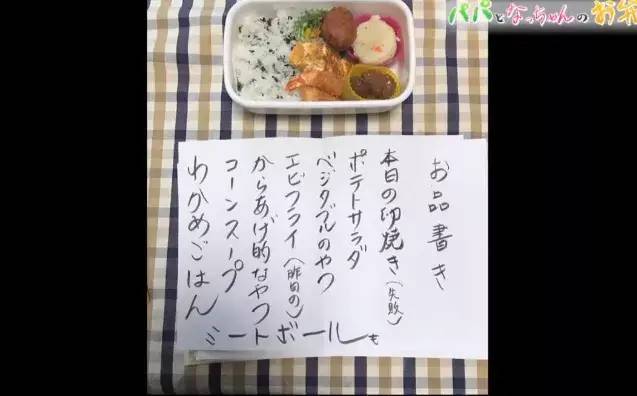 パパとなっちゃんのお
お品書き
本日の卵焼き(失敗)
ポテトサラダ
ベジタブルのやつ
エビフライ(昨日の)
からあげ的なやつ
コーンスープ
わかめごはん
ミートボールも